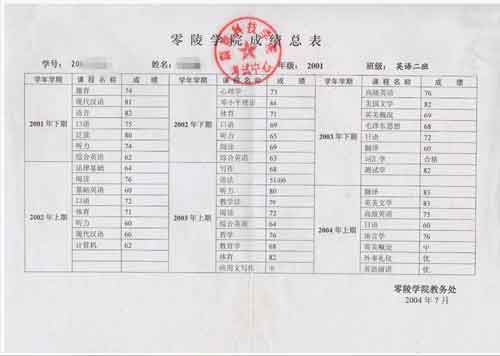 零陵学院成绩总表
学号: 20 姓名: 年级: 2001 班级: 英语二班
学年学期 课程名称 成绩 学年学期 课程名称 成绩 学年学期 课程名称 成绩
德育 74 心理学 73 高级英语 76
现代汉语 81 邓小平理论 84 美国文学 82
语音 82 体育 71 英美概况 69
2001 年下期 口语 75 2002 年下期 口语 69 2003 年下期 毛泽东思想 68
泛读 80 听力 65 日语 72
听力 74 阅读 69 翻译 60
综合英语 62 综合英语 63 词汇学 合格
法律基础 64 写作 68 测试学 82
阅读 76 语法
基础英语 60 听力 80 翻译 83
口语 72 教学法 英美文学 83
2002 年上期 体育 71 2003 年上期 阅读 72 2004 年上期 高级英语 75
听力 60 综合英语 64 日语 60
现代汉语 66 哲学 76 语言学 76
计算机 62 教育学 68 英美概论 中
体育 82 外事礼仪 优
应用文写作 中 英语演讲 优
零陵学院教务处
2004 年 7 月